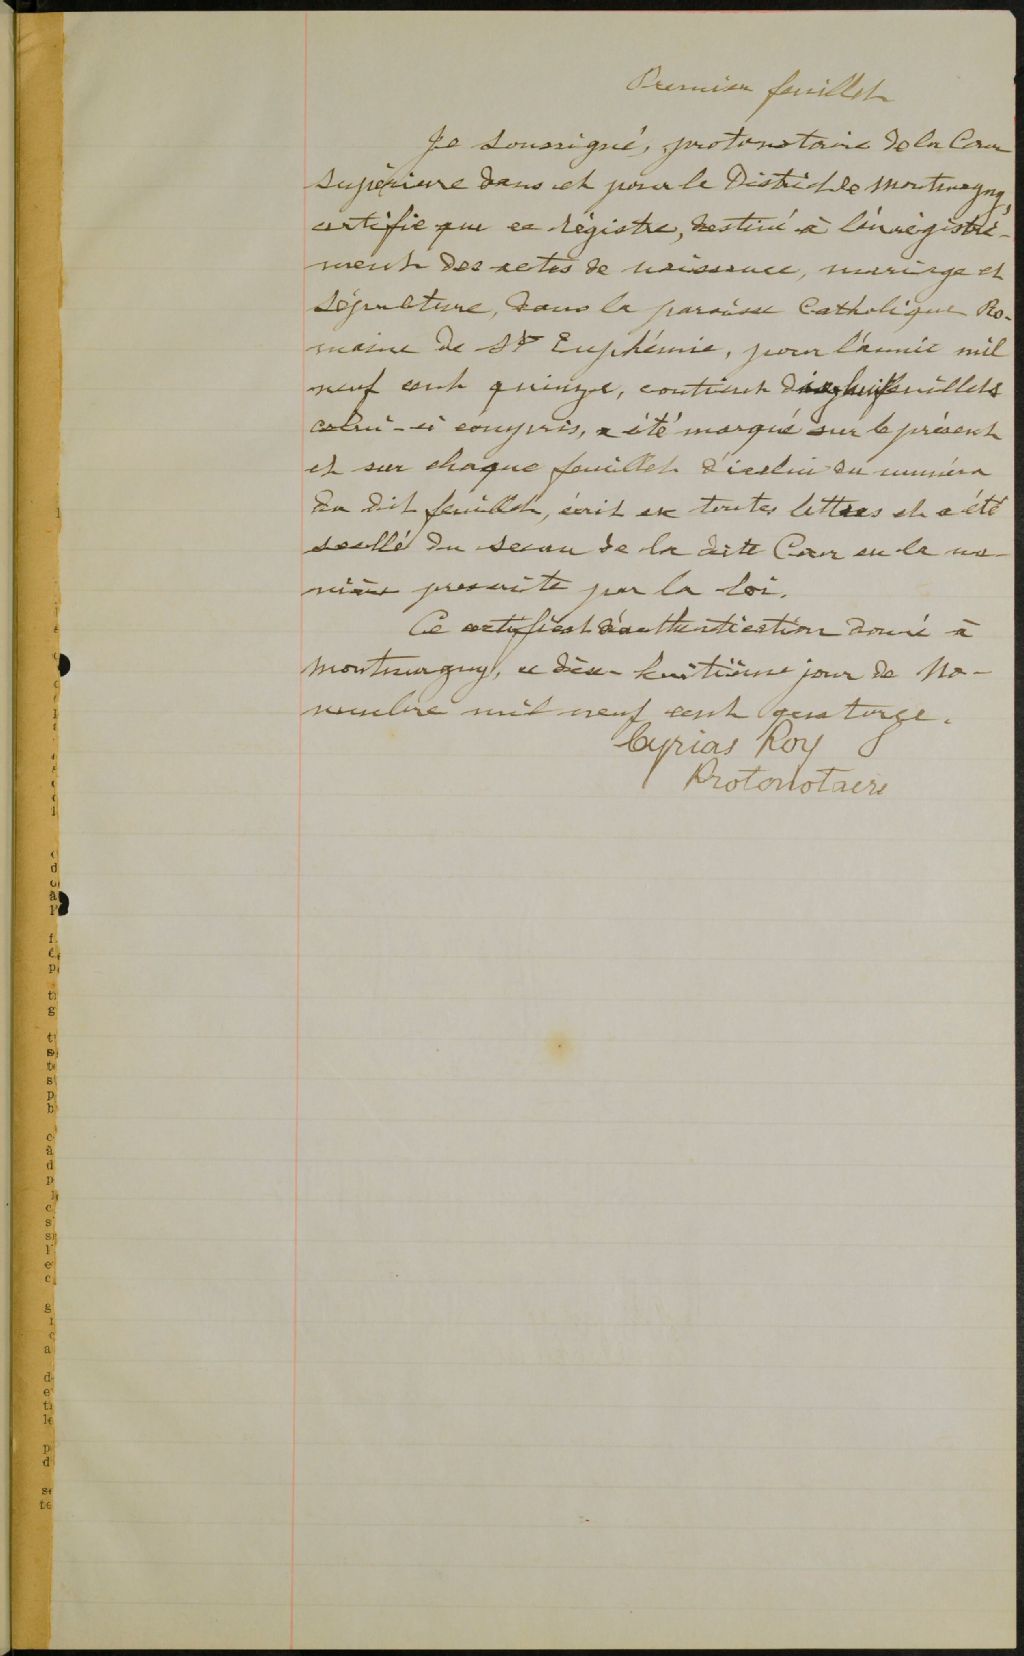 Premier feuillet
Je soussigné, protonotaire de la Cour
Supérieure dans et pour le District de Montmagny,
certifie que ce régistre, destiné à l'enrégistre-
ment des actes de naissance, mariage et
sépulture, dans la paroisse Catholique Ro-
maine de Ste Euphémie, pour l'année mil
neuf cent quinze, contient dix huit feuillets
celui-ci compris, a été marqué sur le présent
et sur chaque feuillet d'icelui du numéro
du dit feuillet, écrit en toutes lettres et a été
scellé du sceau de la dite Cour en la ma-
nière prescrite par la loi.
Ce certificat d'authentication donné à
Montmagny, ce dix-huitième jour de No-
vembre mil neuf cent quatorze.
Cyrias Roy
Protonotaire